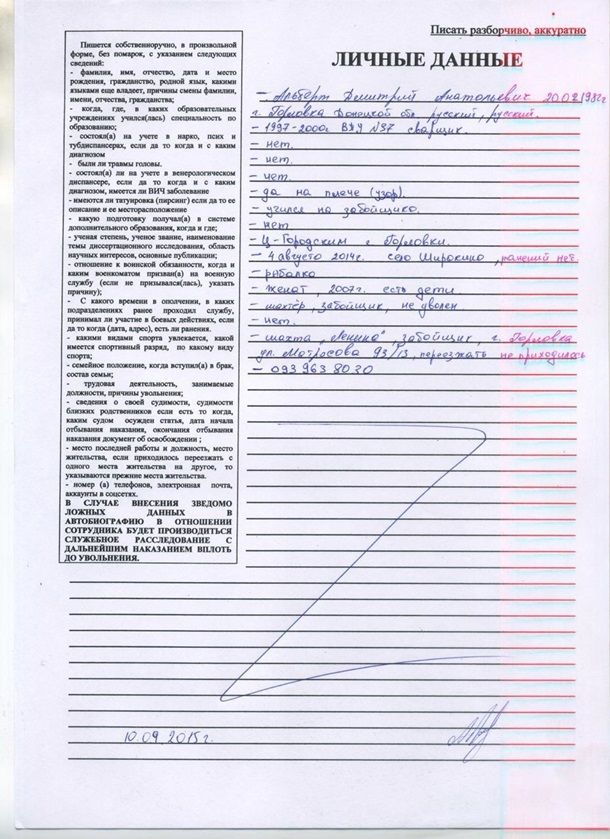 Писать разборчиво, аккуратно
ЛИЧНЫЕ ДАННЫЕ
Пишется собственноручно, в произвольной
форме, без помарок, с указанием следующих
сведений:
- фамилия, имя, отчество, дата и место
рождения, гражданство, родной язык, какими
языками еще владеет, причины смены фамилии,
имени, отчества, гражданства;
- когда, где, в каких образовательных
учреждениях учился(лась) специальность по
образованию;
- состоял(а) на учете в нарко, псих и
тубдиспансерах, если да то когда и с каким
диагнозом
- были ли травмы головы.
- состоял(а) ли на учете в венерологическом
диспансере, если да то когда и с каким
диагнозом, имеется ли ВИЧ заболевание
- имеются ли татуировка (пирсинг) если да то ее
описание и ее месторасположение
- какую подготовку получал(а) в системе
дополнительного образования, когда и где;
- ученая степень, ученое звание, наименование
темы диссертационного исследования, область
научных интересов, основные публикации;
- отношение к воинской обязанности, когда и
каким военкоматом призван(а) на военную
службу (если не призывался(лась), указать
причину);
- С какого времени в ополчении, в каких
подразделениях ранее проходил службу,
принимал ли участие в боевых действиях, если
да то когда (дата, адрес), есть ли ранения.
- какими видами спорта увлекается, какой
имеется спортивный разряд, по какому виду
спорта;
- семейное положение, когда вступил(а) в брак,
состав семьи;
- трудовая деятельность, занимаемые
должности, причины увольнения;
- сведения о своей судимости, судимости
близких родственников если есть то когда,
каким судом осужден статья, дата начала
отбывания наказания, окончания отбывания
наказания документ об освобождении ;
- место последней работы и должность, место
жительства, если приходилось переезжать с
одного места жительства на другое, то
указываются прежние места жительства.
- номер (а) телефонов, электронная почта,
аккаунты в соцсетях.
В СЛУЧАЕ ВНЕСЕНИЯ ЗВЕДОМО
ЛОЖНЫХ ДАННЫХ В
АВТОБИОГРАФИЮ В ОТНОШЕНИИ
СОТРУДНИКА БУДЕТ ПРОИЗВОДИТЬСЯ
СЛУЖЕБНОЕ РАССЛЕДОВАНИЕ С
ДАЛЬНЕЙШИМ НАКАЗАНИЕМ ВПЛОТЬ
ДО УВОЛЬНЕНИЯ.
- Альберт Дмитрий Анатольевич 20.02.1982г
г. Горловка Донецкой обл русский, русский.
- 1997-2000г. ВПУ №37 сварщик.
- нет.
- нет.
- нет.
- да на плече (узор).
- учился на забойщико.
- нет
- Ц-Городским г. Горловки.
- 4 августо 2014г. село Широкино, ранений нет
- рыбалко
- женат, 2007г. есть дети
- шахтёр, забойщик, не уволен
- нет.
- шахта "Ленина", забойщик, г. Горловка
ул. Матросова 93/13, переезжать не приходилось
- 093 963 80 20
10.09.2015г.